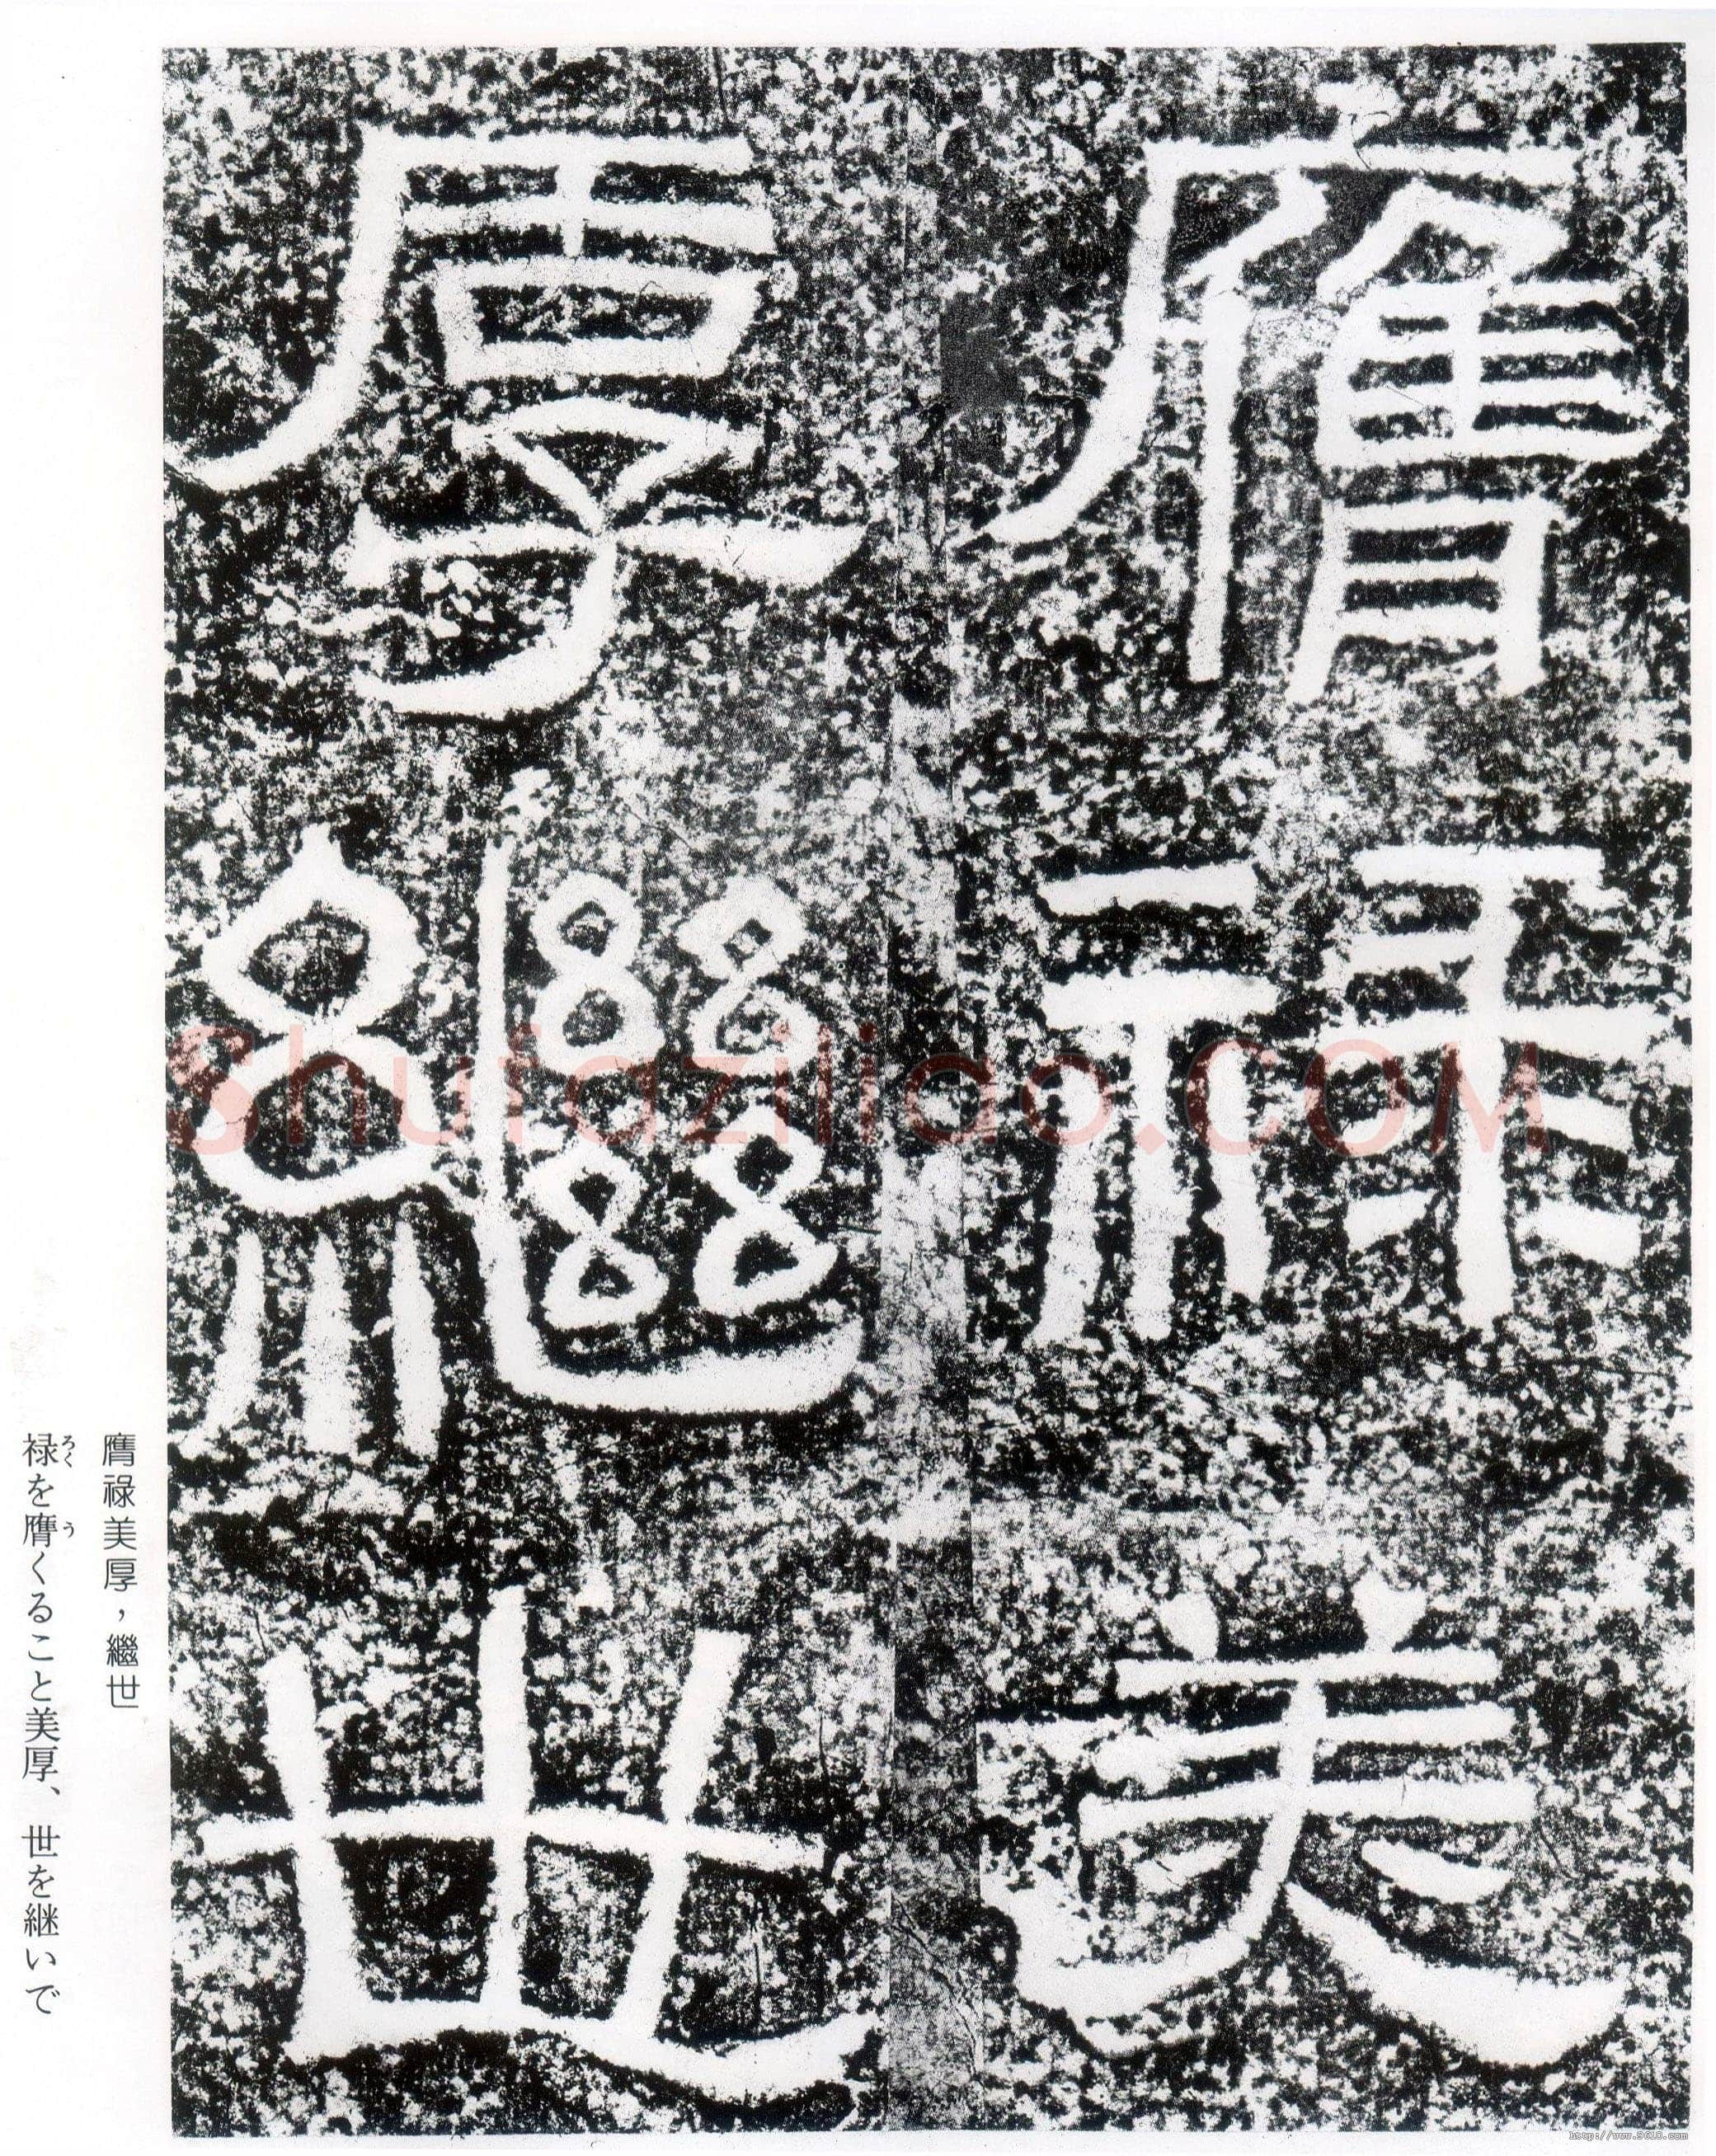 膺祿美
厚繼世
膺祿美厚，繼世
禄を膺くること美厚、世を継いで
ろく
う
Shufaziliao.COM
http://www.9610.com